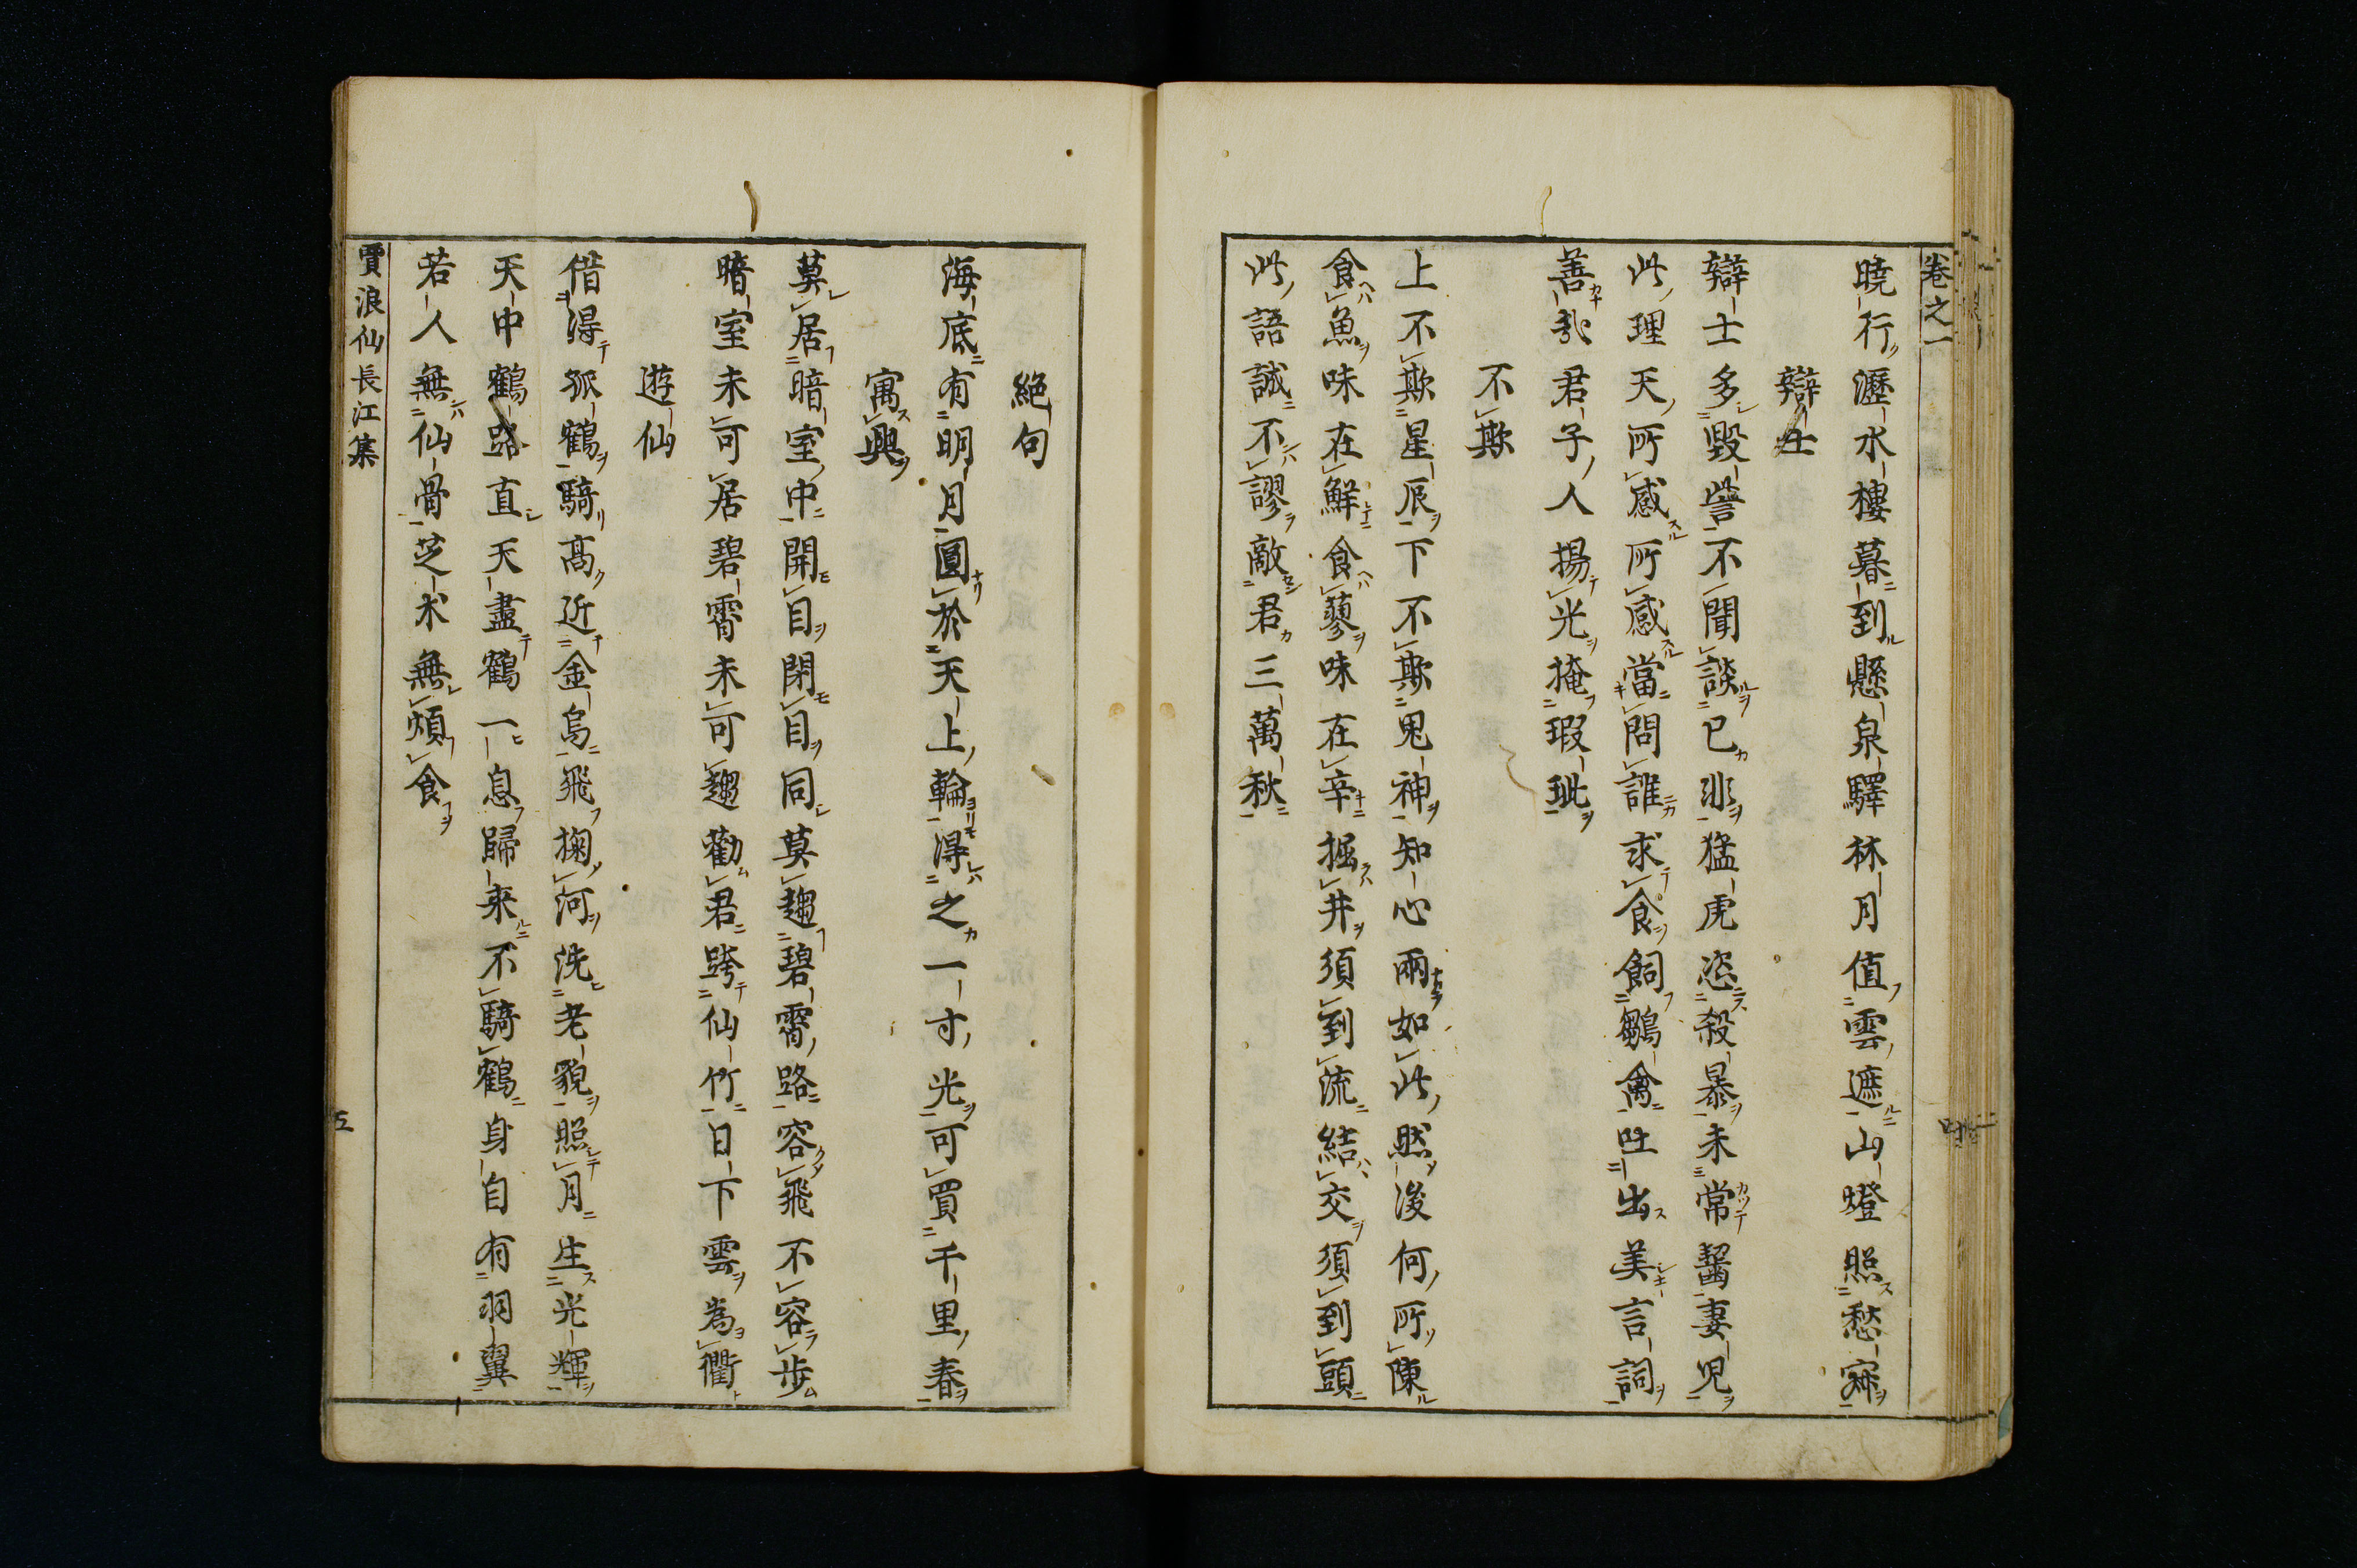 卷之一
曉行瀝水樓暮到懸泉驛林月值雲遮山燈照愁寐
辯士
辯士多毀訾不聞談已非猛虎恣殺暴未常齧妻児
此理天所感所感當問誰求食飼雛禽吐出美言詞
善哉君子人揚光掩瑕玼
不欺
上不欺星辰下不欺鬼神知心兩如此然後何所陳
食魚味在鮮食蓼味在辛掘井須到流結交須到頭
此語誠不謬敵君三萬秋
絕句
海底有明月圓於天上輪得之一寸光可買千里春
寓興
莫居暗室中開目閉目同莫趨碧霄路容飛不容步
暗室未可居碧霄未可趨勸君跨仙竹日下雲為衢
遊仙
借得孤鶴騎高近金烏飛掬河洗老貌照月生光輝
天中鶴路直天盡鶴一息歸来不騎鶴身自有羽翼
若人無仙骨芝朮無煩食
賈浪仙長江集
五